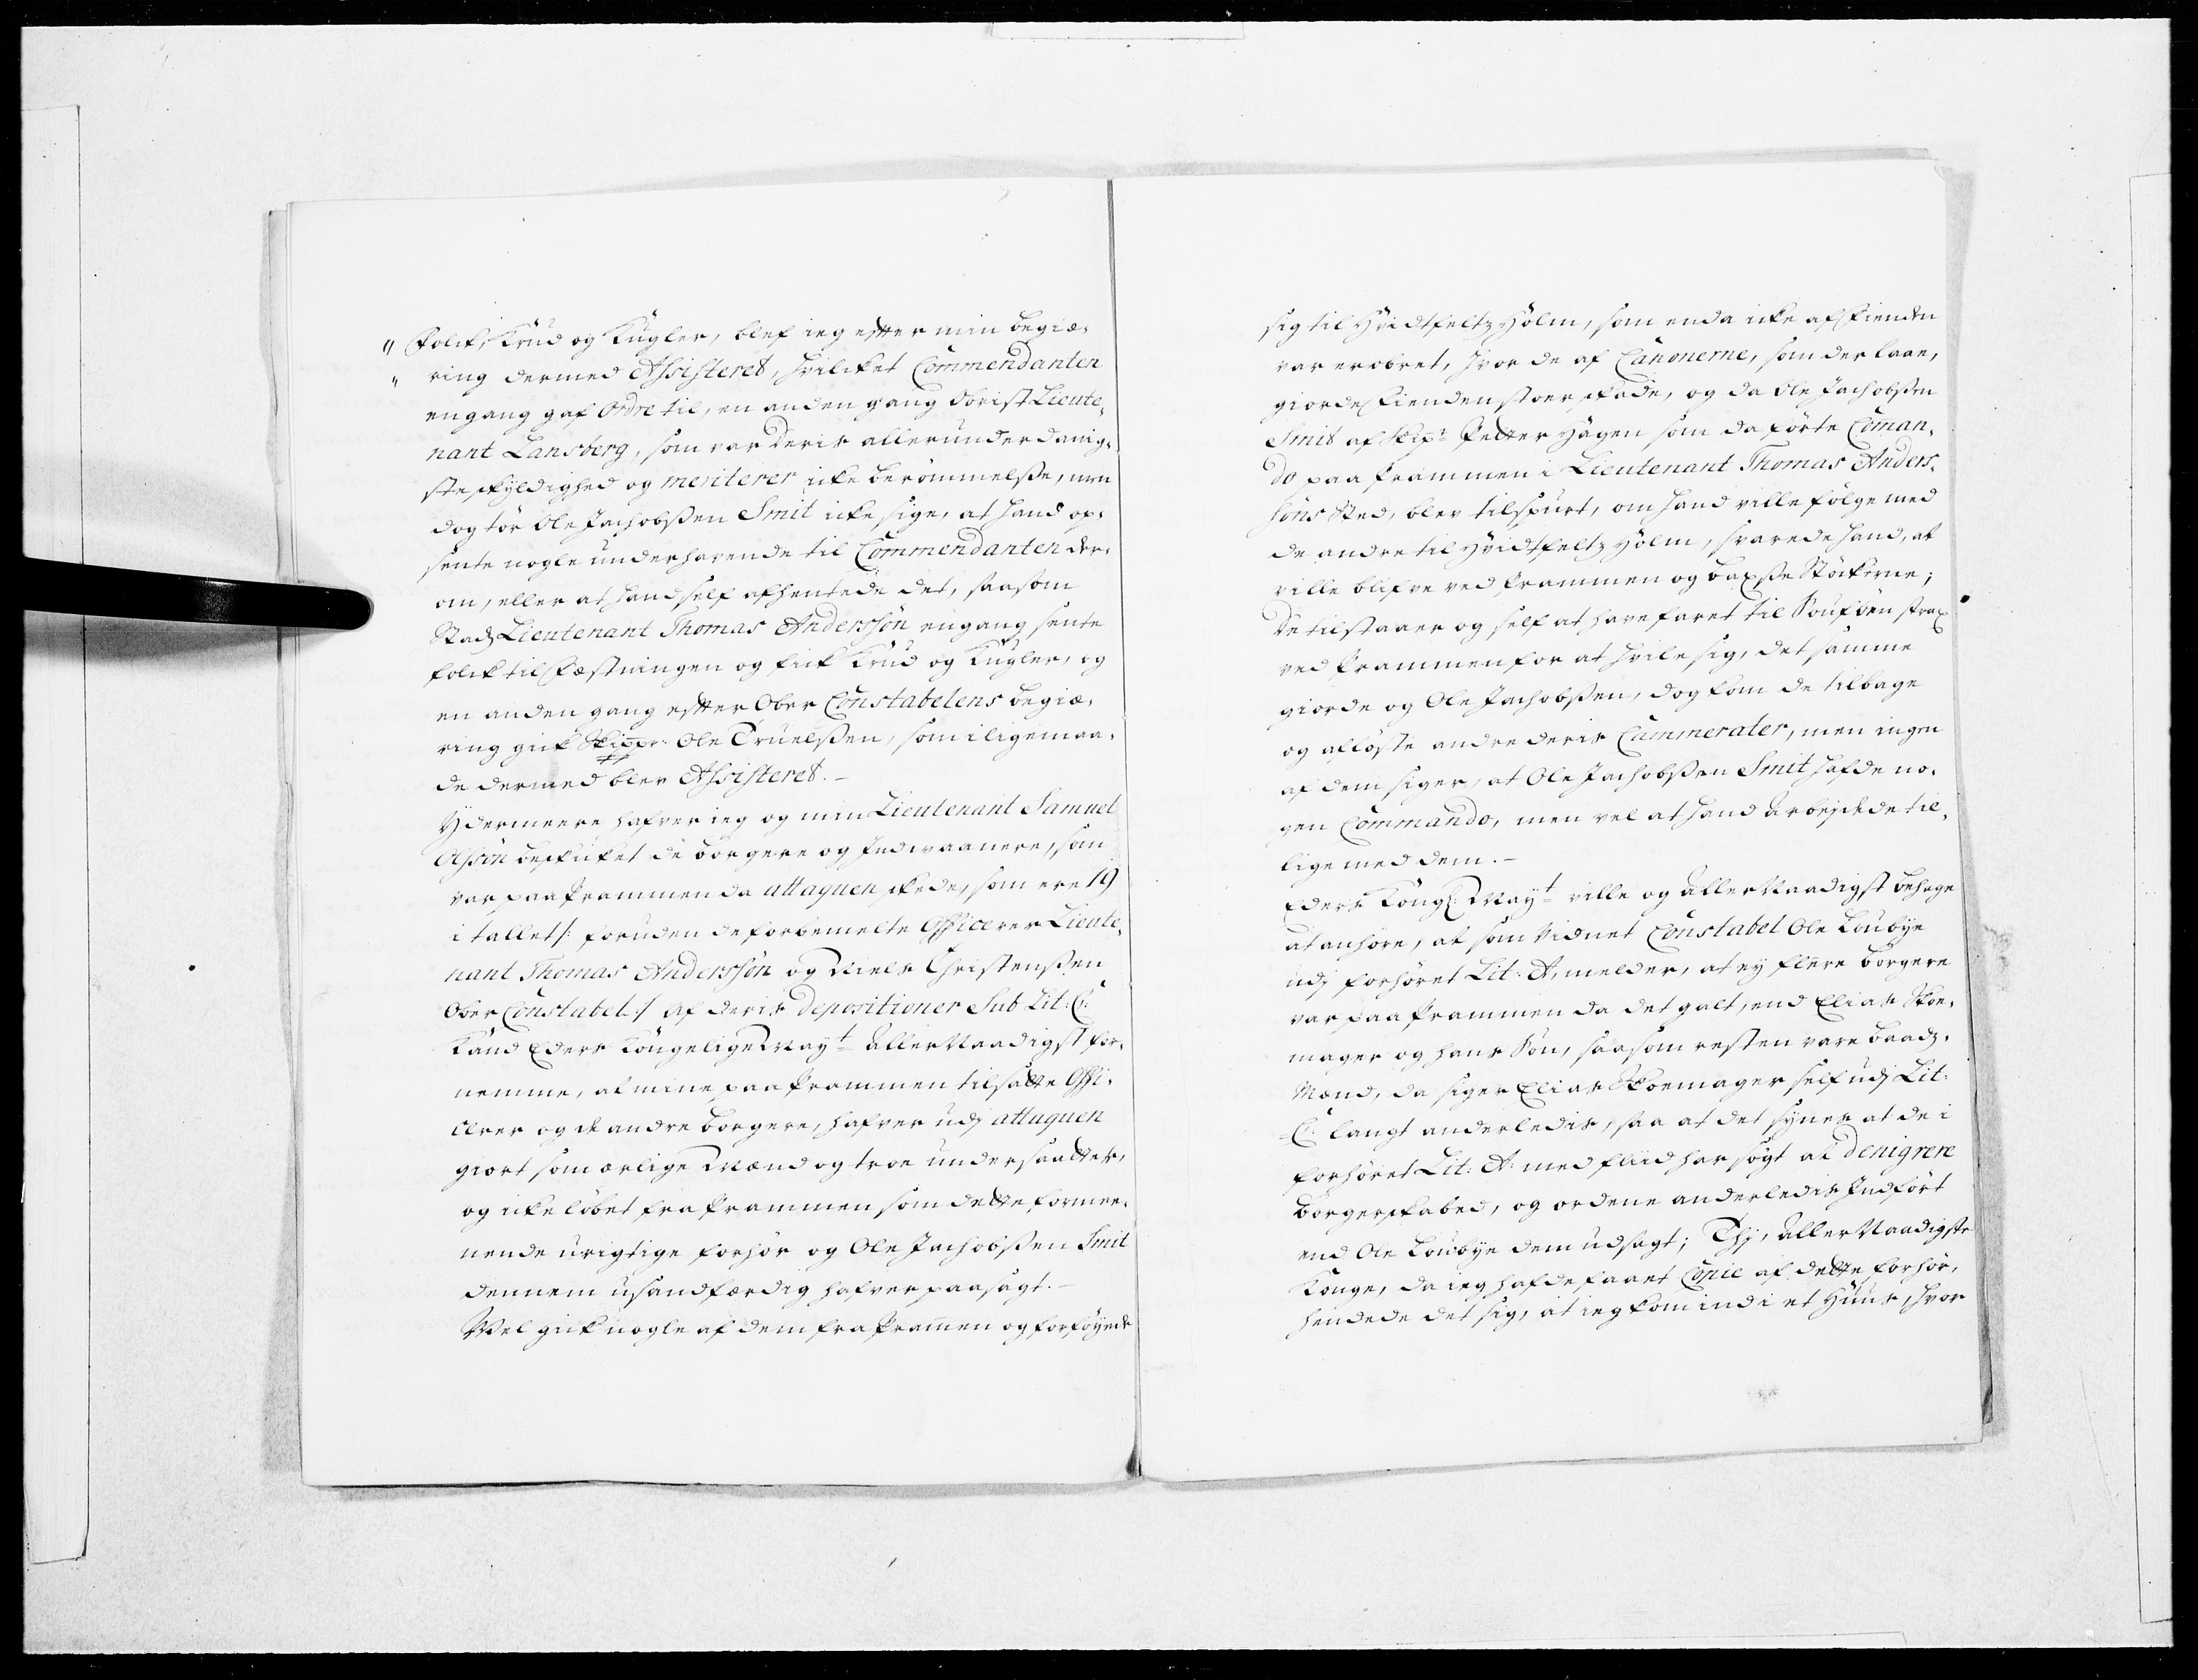 " Folck, Krud og Kugler, blef ieg effter min begiæ,
" ring dermed Assisteret, hvilcket Commendanten
engang gaf Ordre til, en anden gang Obrist Lieute,
nant Lansberg, som var deris allerunderdanig,
ste skyldighed og meriterer icke berømmelsse, men
dog tør Ole Jachobssen Smit icke sige, at hand op,
sente nogle underhavende til Commendanten der,
om, eller at hand self afhentede det, saasom
Stads Lieutenant Thomas Anderssøn engang sente
folck til Fæstningen og fick Krud og Kugler, og
en anden gang effter Ober Constabelens begiæ,
ring gick Skippr: Ole Truelssen, som iligemaa,
de dermed blev Assisteret.-
Ydermeere hafver ieg og min Lieutenant Samuel
Olssøn beskicket de borgere og Indvaanere, som
var paa Prammen da attaquen skede, som ere 19
i tallet /: foruden de forbemelte Officerer Lieute,
nant Thomas Anderssøn og Niels Christenssen
Ober Constabel :/ af deris depositioner Sub Lit: C:
Kand Eders Kongelige May:t Aller Naadigst for,
nemme, at mine paa Prammen tilsatte Offi,
cerer og de andre borgere, hafver udj attaquen
giort som ærlige Mænd og troe undersaatter,
og icke løbet fra Prammen som dette formee,
nende urigtige forhør og Ole Jachobssen Smit
dennem usandfærdig hafver paasagt.-
Vel gick nogle af dem fra Pramen og forføyede
sig til Hvidtfeltz Holm, som enda icke af Fienden
var erobret, hvor de af Canonerne, som der laae,
giorde Fienden stoer skade, og da Ole Jachobssen
Smit af Skipr: Petter Hagen som da førte Coman,
do paa Prammen i Lieutenant Thomas Anders,
søns sted, blev tilspurt, om hand ville følge med
de andre til Hvidtfeltz Holm, svarede hand, at
ville blifve ved Prammen og baxsse Støckerne;
De tilstaaer og self at have faret til Kouføen strax
ved Prammen for at hvile sig, det samme
giorde og Ole Jachobssen, dog kom de tilbage
og afløste andre deris Cammerater, men ingen
af dem siger, at Ole Jachobssen Smit hafde no,
gen Commando, men vel at hand arbeydede til,
lige med dem.-
Eders Kongl: May:t ville og Aller Naadigst behage
at anhøre, at som Vidnet Constabel Ole Loubye
udj forhøret Lit: A, melder, at ey fleere borgere
var paa Prammen da det galt, end Elias Skoe,
mager og hans Søn, saasom resten vare baads,
Mænd, da siger Elias Skoemager self udj Lit:
C: langt anderledis, saa at det synes at de i
forhøret Lit: A: med fliid har søgt at denigrere
borgerskabed, og ordene anderledis Indført
end Ole Loubye dem udsagt; Thj, Aller Naadigste
Konge, da ieg hafde faaet Copie af dette forhør,
hendede det sig, at ieg kom ind i et Huus, hvor